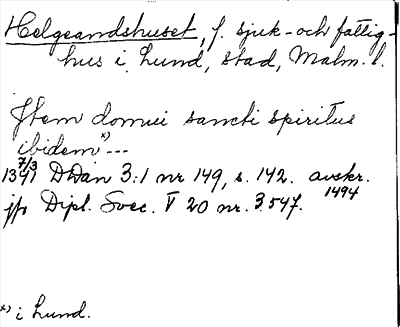 Helgeandshuset, f. sjuk- och fattig-
hus i Lund, stad, Malm. l.
Item domui sancti spiritus
ibidem x) ---
7/3
1341 DDan 3:1 nr 149, s. 142. avskr.
1494
jfr Dipl. Svec. V 20 nr. 3547.
x) i Lund.